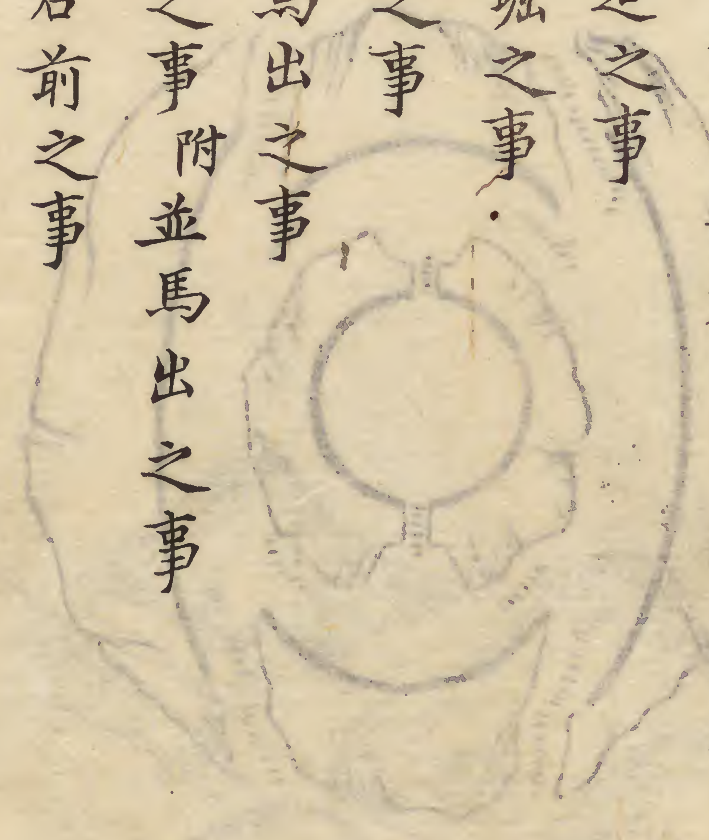 之事
堀之事
之事
馬出之事
之事 附並馬出之事
名前之事